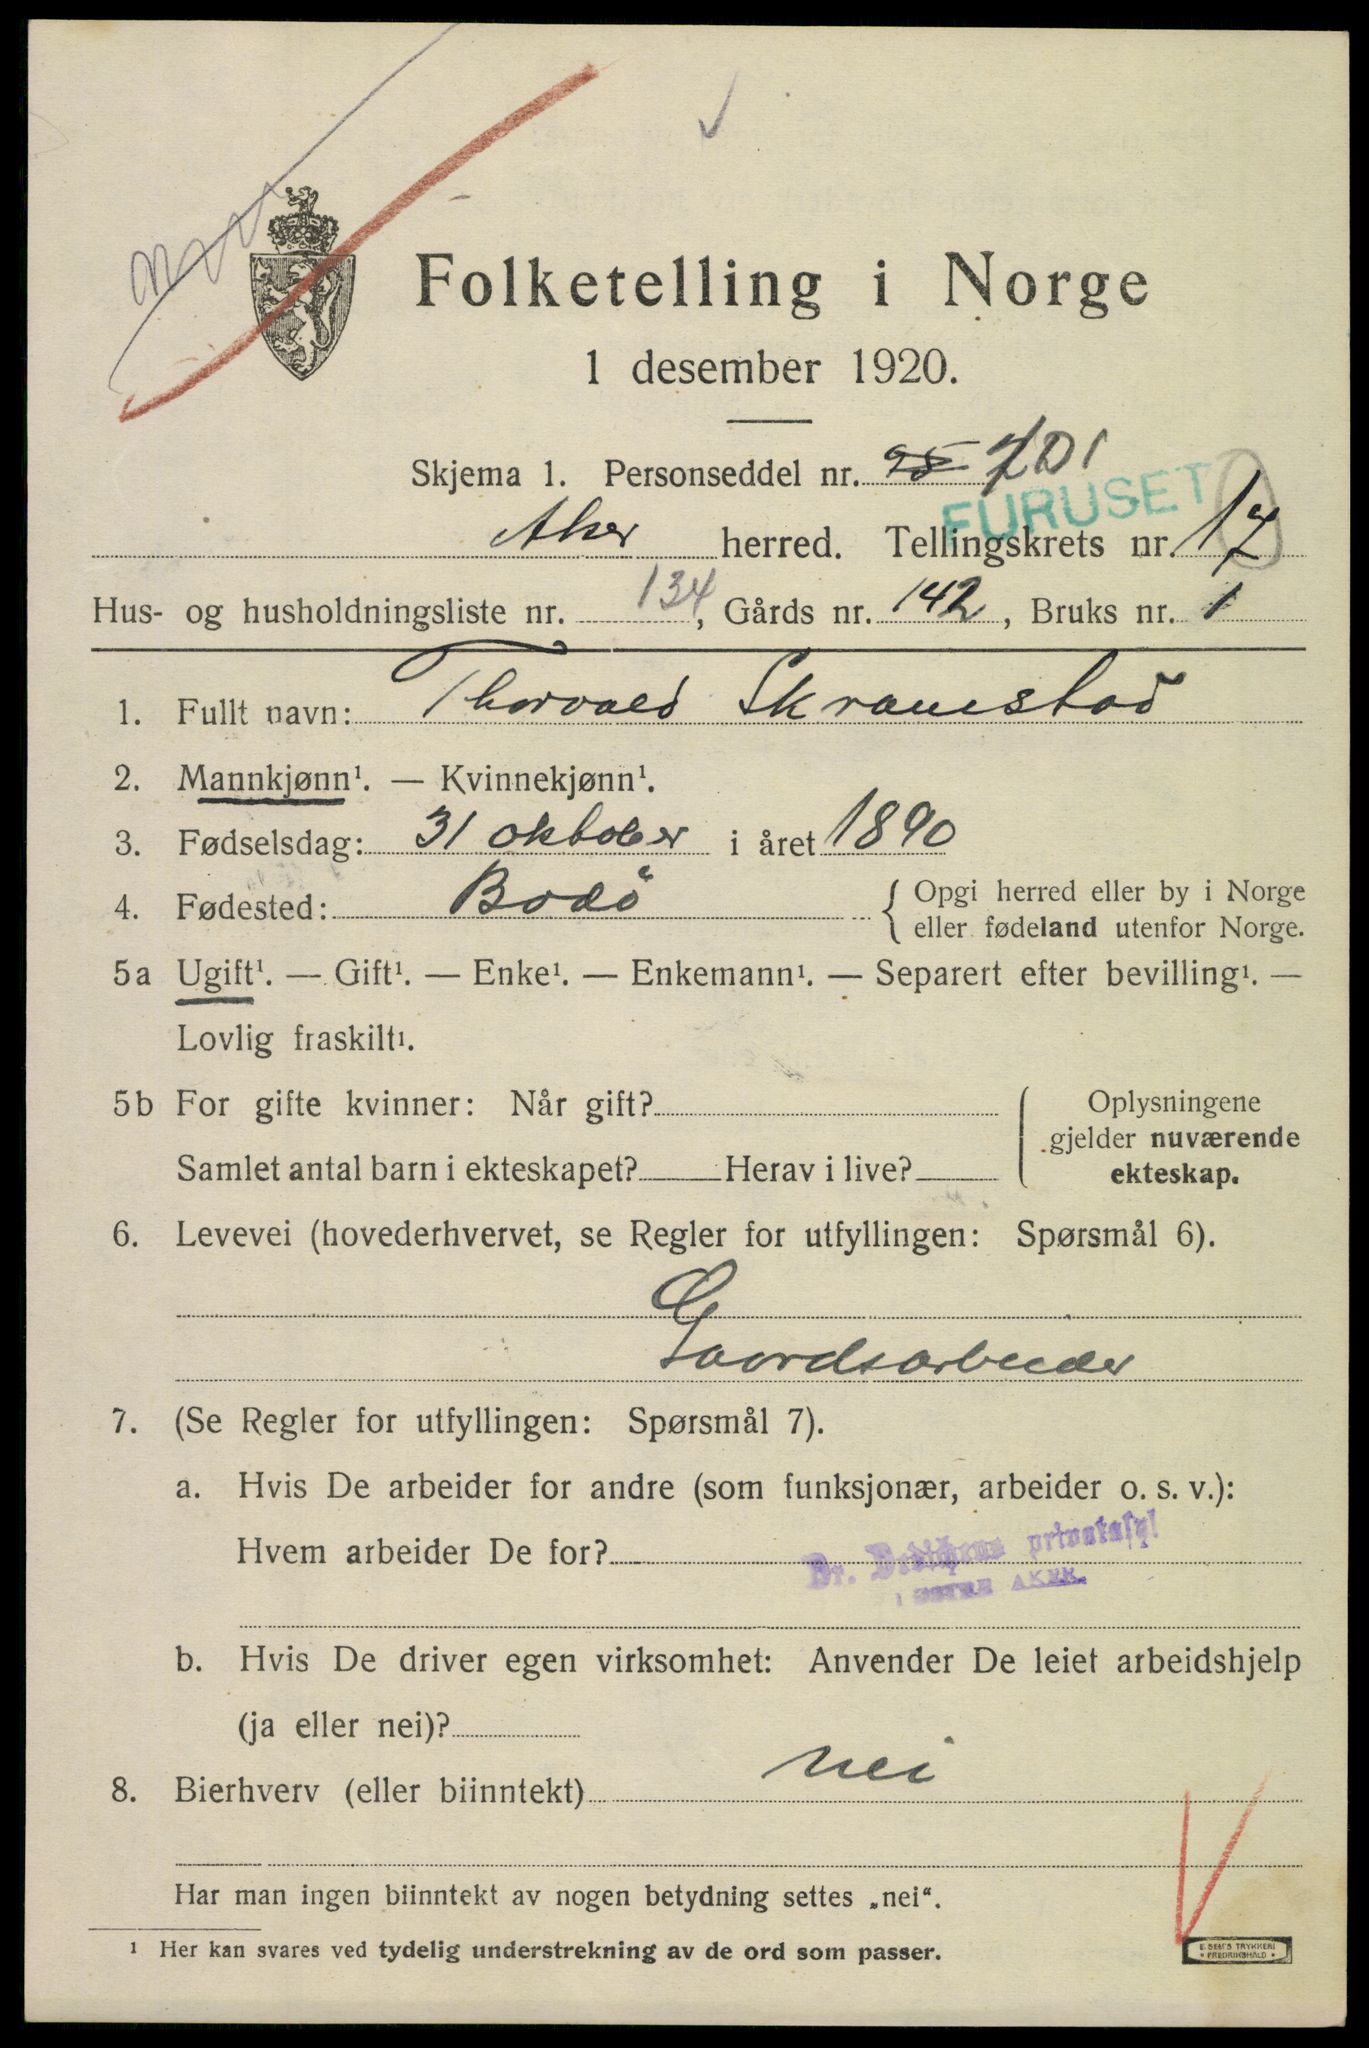 Folketelling i Norge
1 desember 1920.
Skjema 1. Personseddel nr. 25 201
FURUSET
Aker herred. Tellingskrets nr. 17
Hus- og husholdningsliste nr. 134, Gårds nr. 142, Bruks nr. 1
1. Fullt navn: Thorvald Skramstad
2. Mannkjønn¹. — Kvinnekjønn¹.
3. Fødselsdag: 31 oktober i året 1890
4. Fødested: Bodö { Opgi herred eller by i Norge
eller fødeland utenfor Norge.
5a Ugift¹. — Gift¹. — Enke¹. — Enkemann¹. — Separert efter bevilling¹. —
Lovlig fraskilt¹.
5b For gifte kvinner: Når gift? Oplysningene
gjelder nuværende
Samlet antal barn i ekteskapet? Herav i live? ekteskap.
6. Levevei (hovederhvervet, se Regler for utfyllingen: Spørsmål 6).
Gaardsarbeider
7. (Se Regler for utfyllingen: Spørsmål 7).
a. Hvis De arbeider for andre (som funksjonær, arbeider o. s. v.):
Hvem arbeider De for? Dr. Dedichens privatasyl
ØSTRE AKER.
b. Hvis De driver egen virksomhet: Anvender De leiet arbeidshjelp
(ja eller nei)?
8. Bierhverv (eller biinntekt) nei
Har man ingen biinntekt av nogen betydning settes „nei“.
¹ Her kan svares ved tydelig understrekning av de ord som passer.
E. SEM'S TRYKKERI
* FREDRIKSHALD *